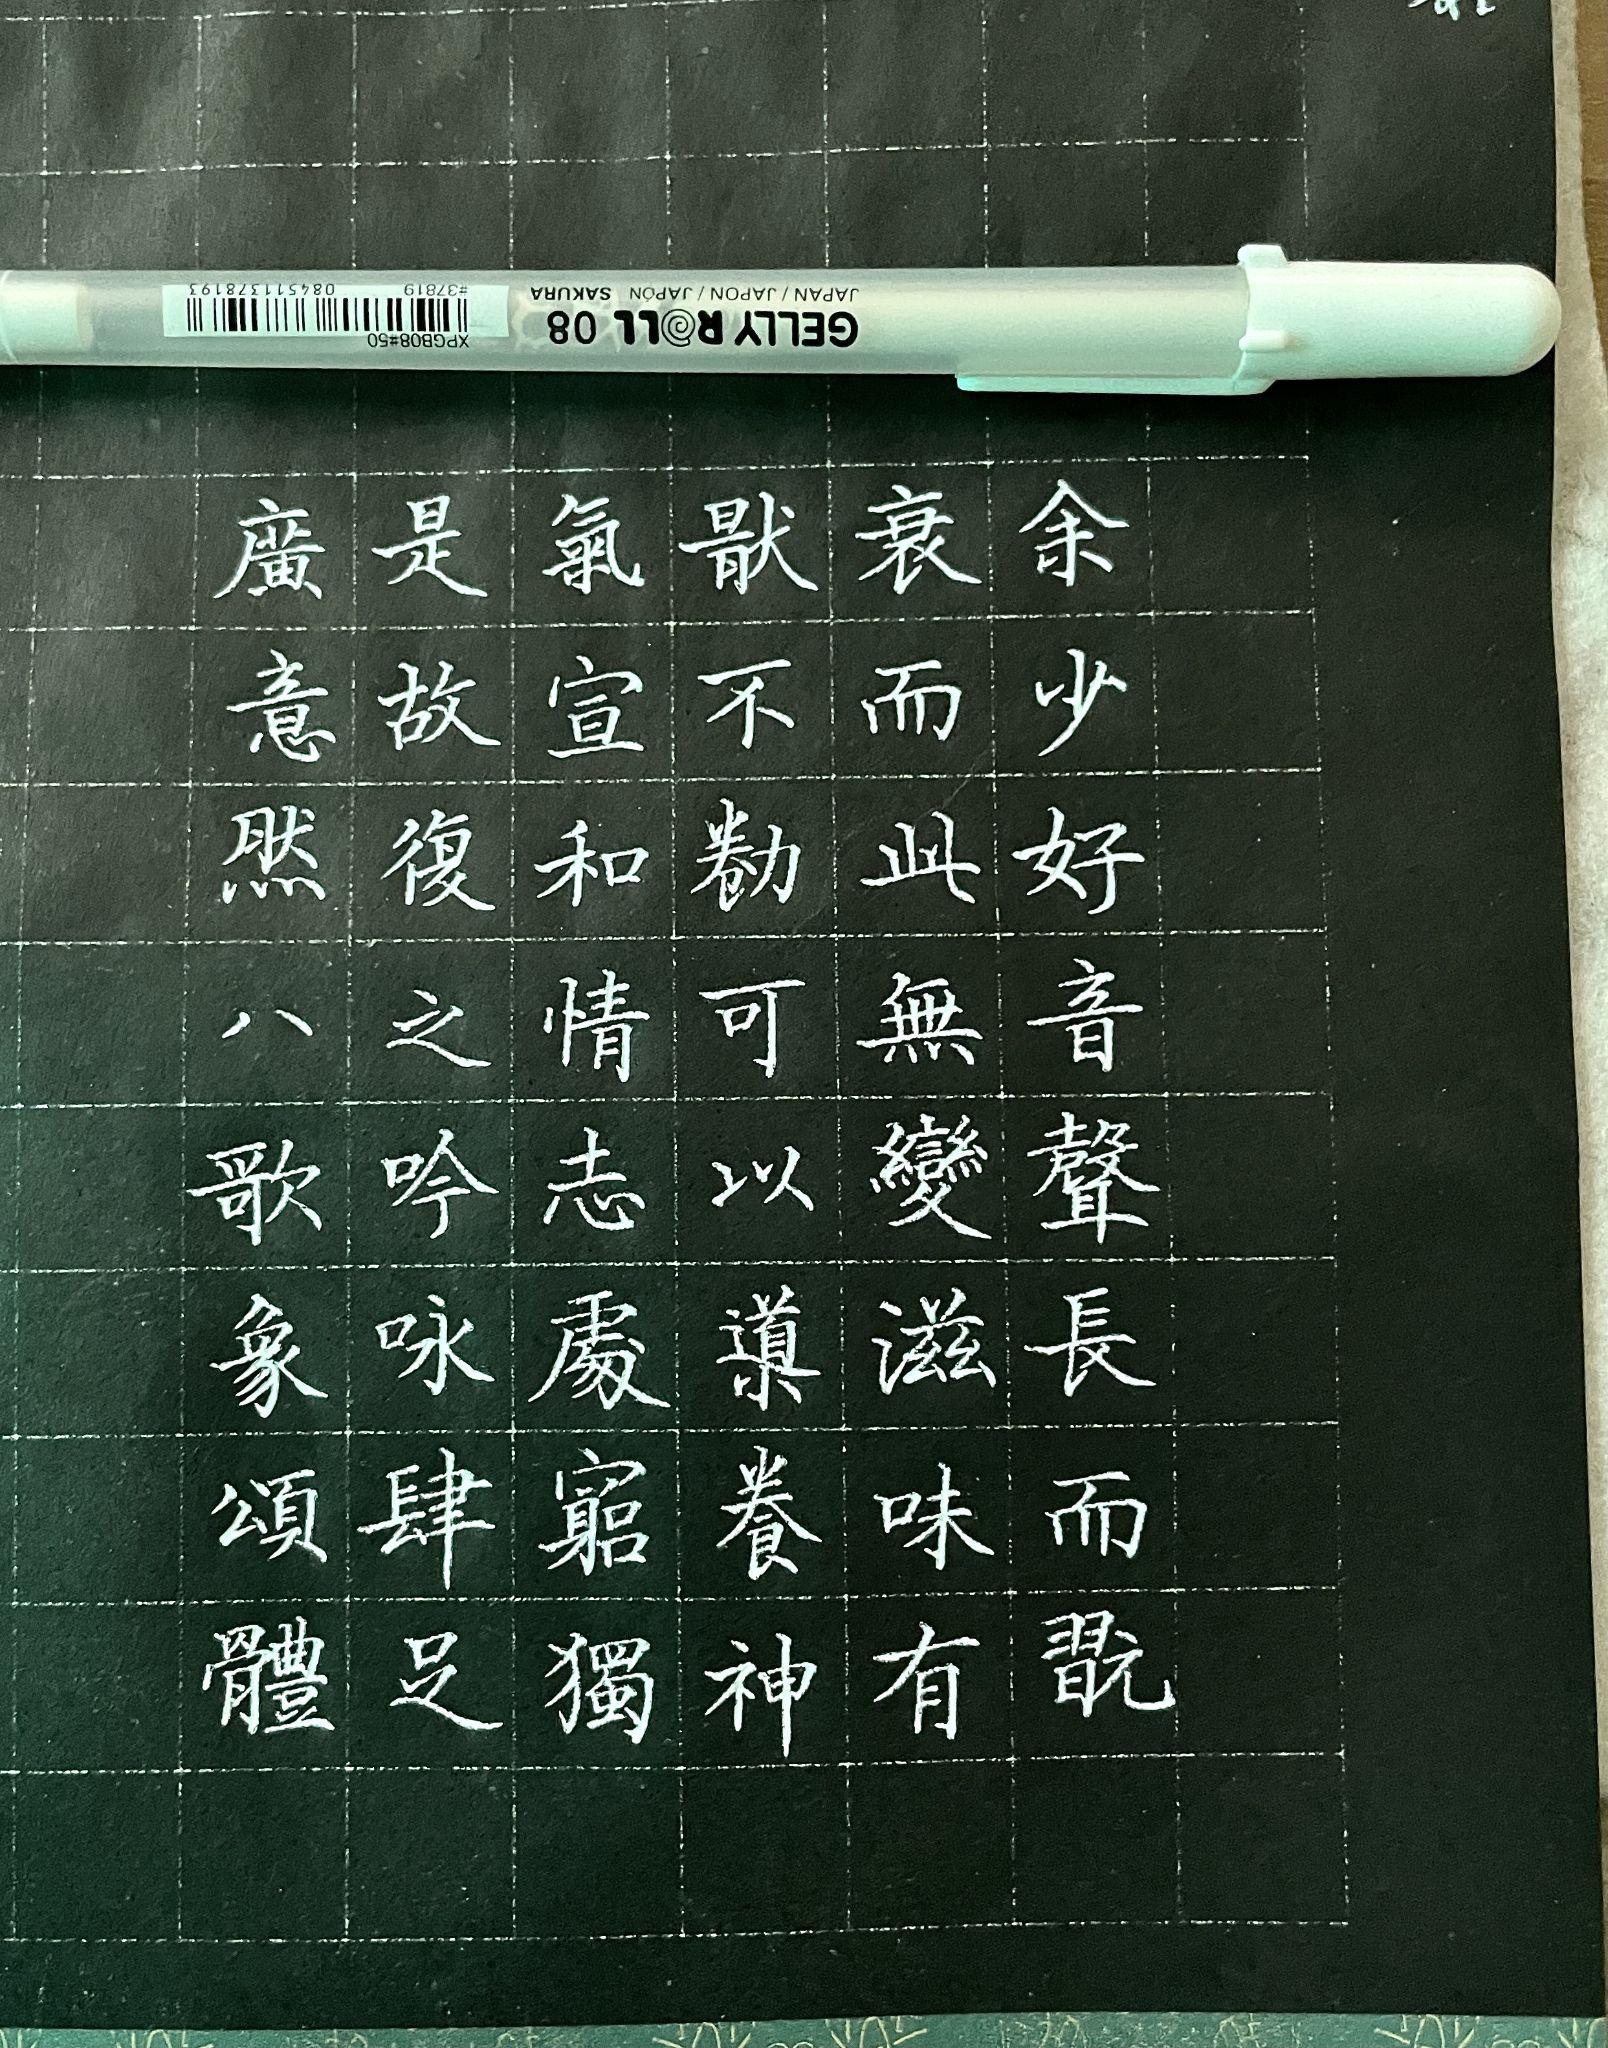 余少好音聲長而翫
衰而此無變滋味有
猒不勌可以導養神
氣宣和情志處窮獨
是故復之吟咏肆足
廣意然八歌象頌體
GELLY ROLL 08
JAPAN / JAPON / JAPÓN SAKURA
XPGB08#50
#37819 084511378193